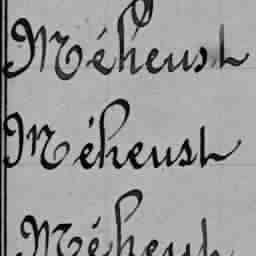 Méheust
Méheust
Méheust